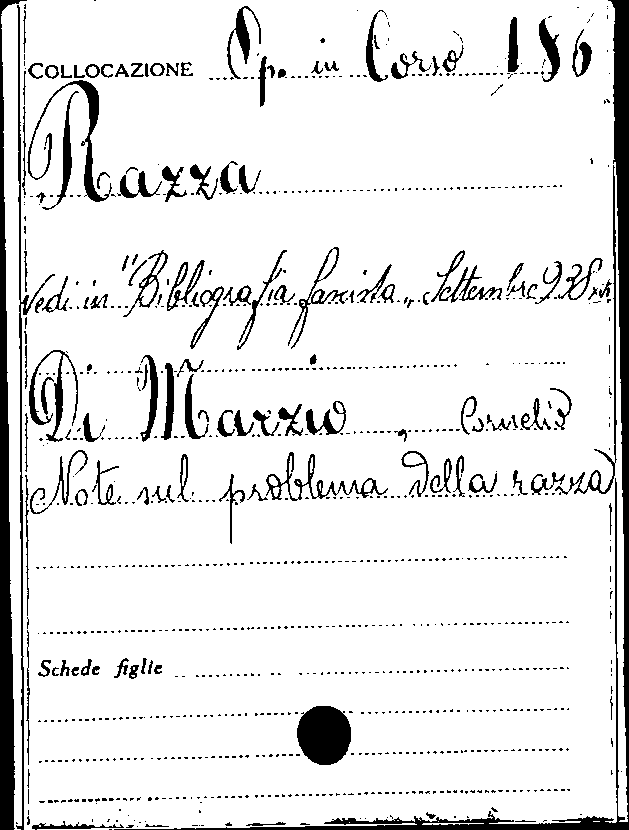 COLLOCAZIONE Sp. in Corso 186
Razza
Vedi in "Bibliografia fascista„ Settembre 938
Di Marzio, Cornelio
Note sul problema della razza
Schede figlie